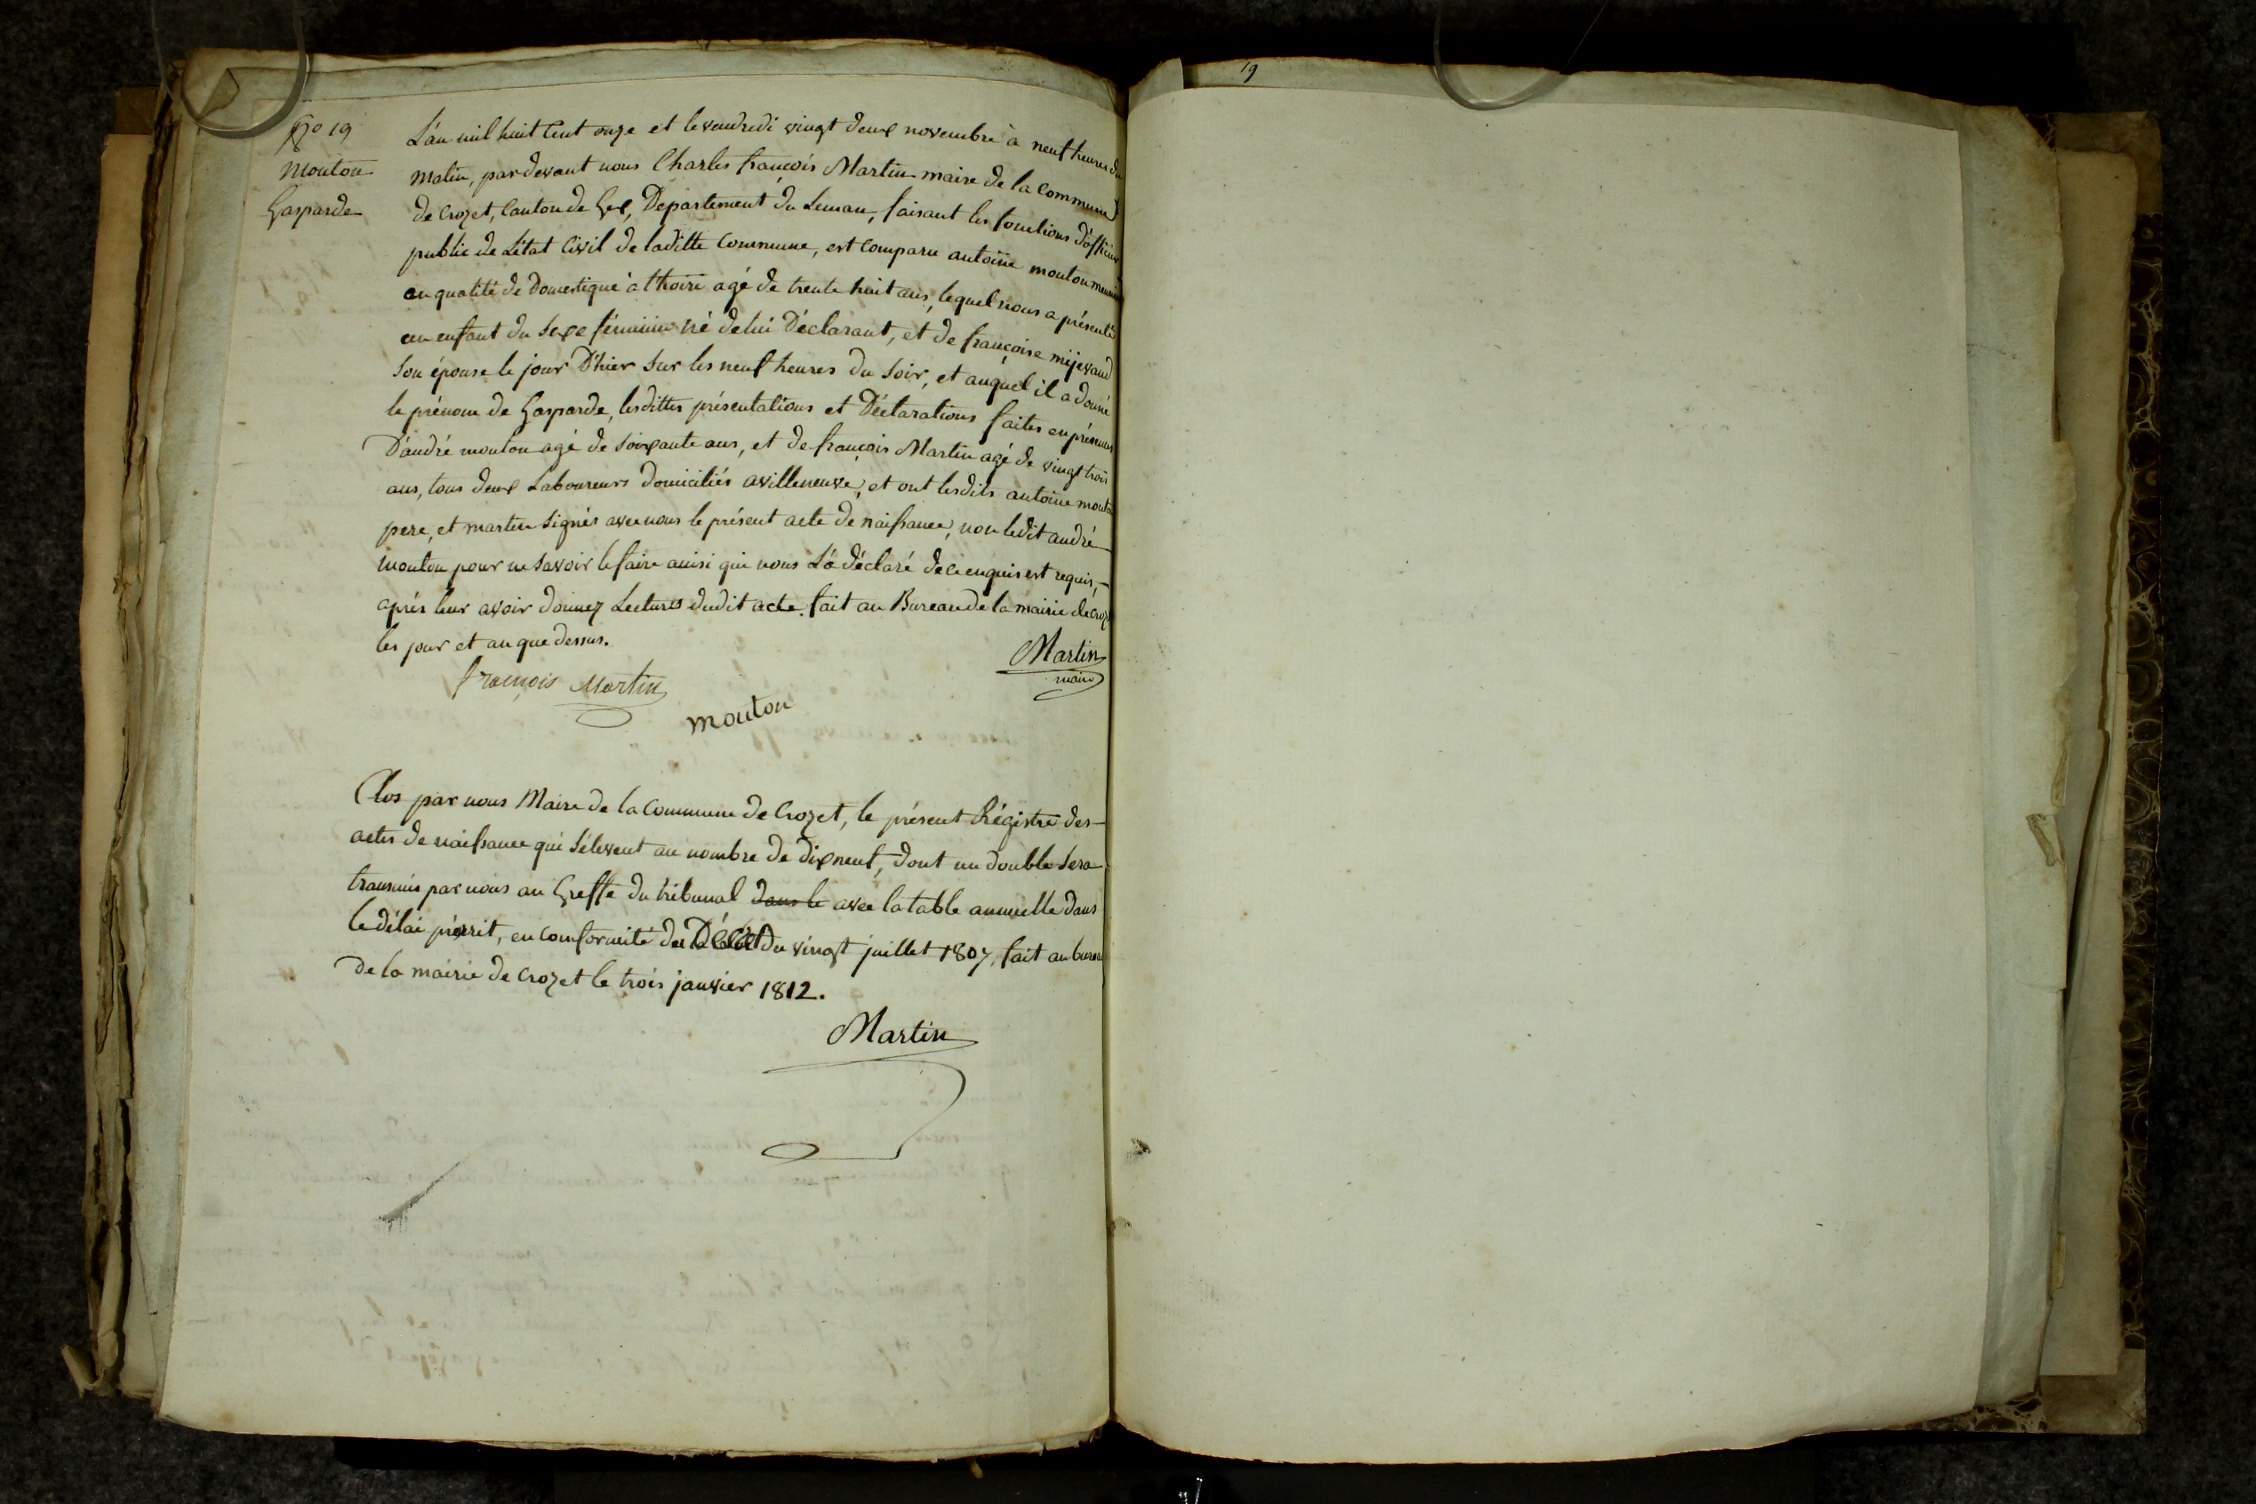 No 19
Mouton
Gasparde
L'an mil huit Cent onze et le vendredi vingt deux novembre à neuf heures du
matin, pardevant nous Charles françois Martin maire de la Commune
de Crozet, Canton de Gex, Departement du Leman, faisant les fonctions d'officier
public de L'état Civil de laditte Commune, est comparu antoine mouton meunier
en qualité de Domestique à thoire agé de trente huit ans, lequel nous a présenté
un enfant du sexe féminin né de lui Déclarant, et de françoise mijevand
son épouse le jour D'hier sur les neuf heures du soir, et auquel il a donné
le prénom de Gasparde, lesdittes présentations et Déclarations faites en présence
D'andré mouton agé de soixante ans, et de françois Martin agé de vingt trois
ans, tous deux Laboureurs domiciliés avilleneuve, et ont lesdits antoine mouton
pere, et martin signés avec nous le présent acte de naissance, non ledit andré
mouton pour ne savoir le faire ainsi qui nous L'a déclaré de ce enquis est requis,
après leur avoir donnez Lectures dudit acte. fait au Bureau de la mairie de Croz
les jour et an que dessus.
Martin
maire
françois Martin
mouton
Clos par nous Maire de la Commune de Crozet, le présent Régistre des
actes de naissance qui s'élevent au nombre de dixneuf, dont un double sera
transmis par nous au Greffe du tribunal dans le avec la table annuelle dans
le délai préscrit, en conformité du Décret du vingt juillet 1807, fait au bureau
de la mairie de Crozet le trois janvier 1812.
Martin
19